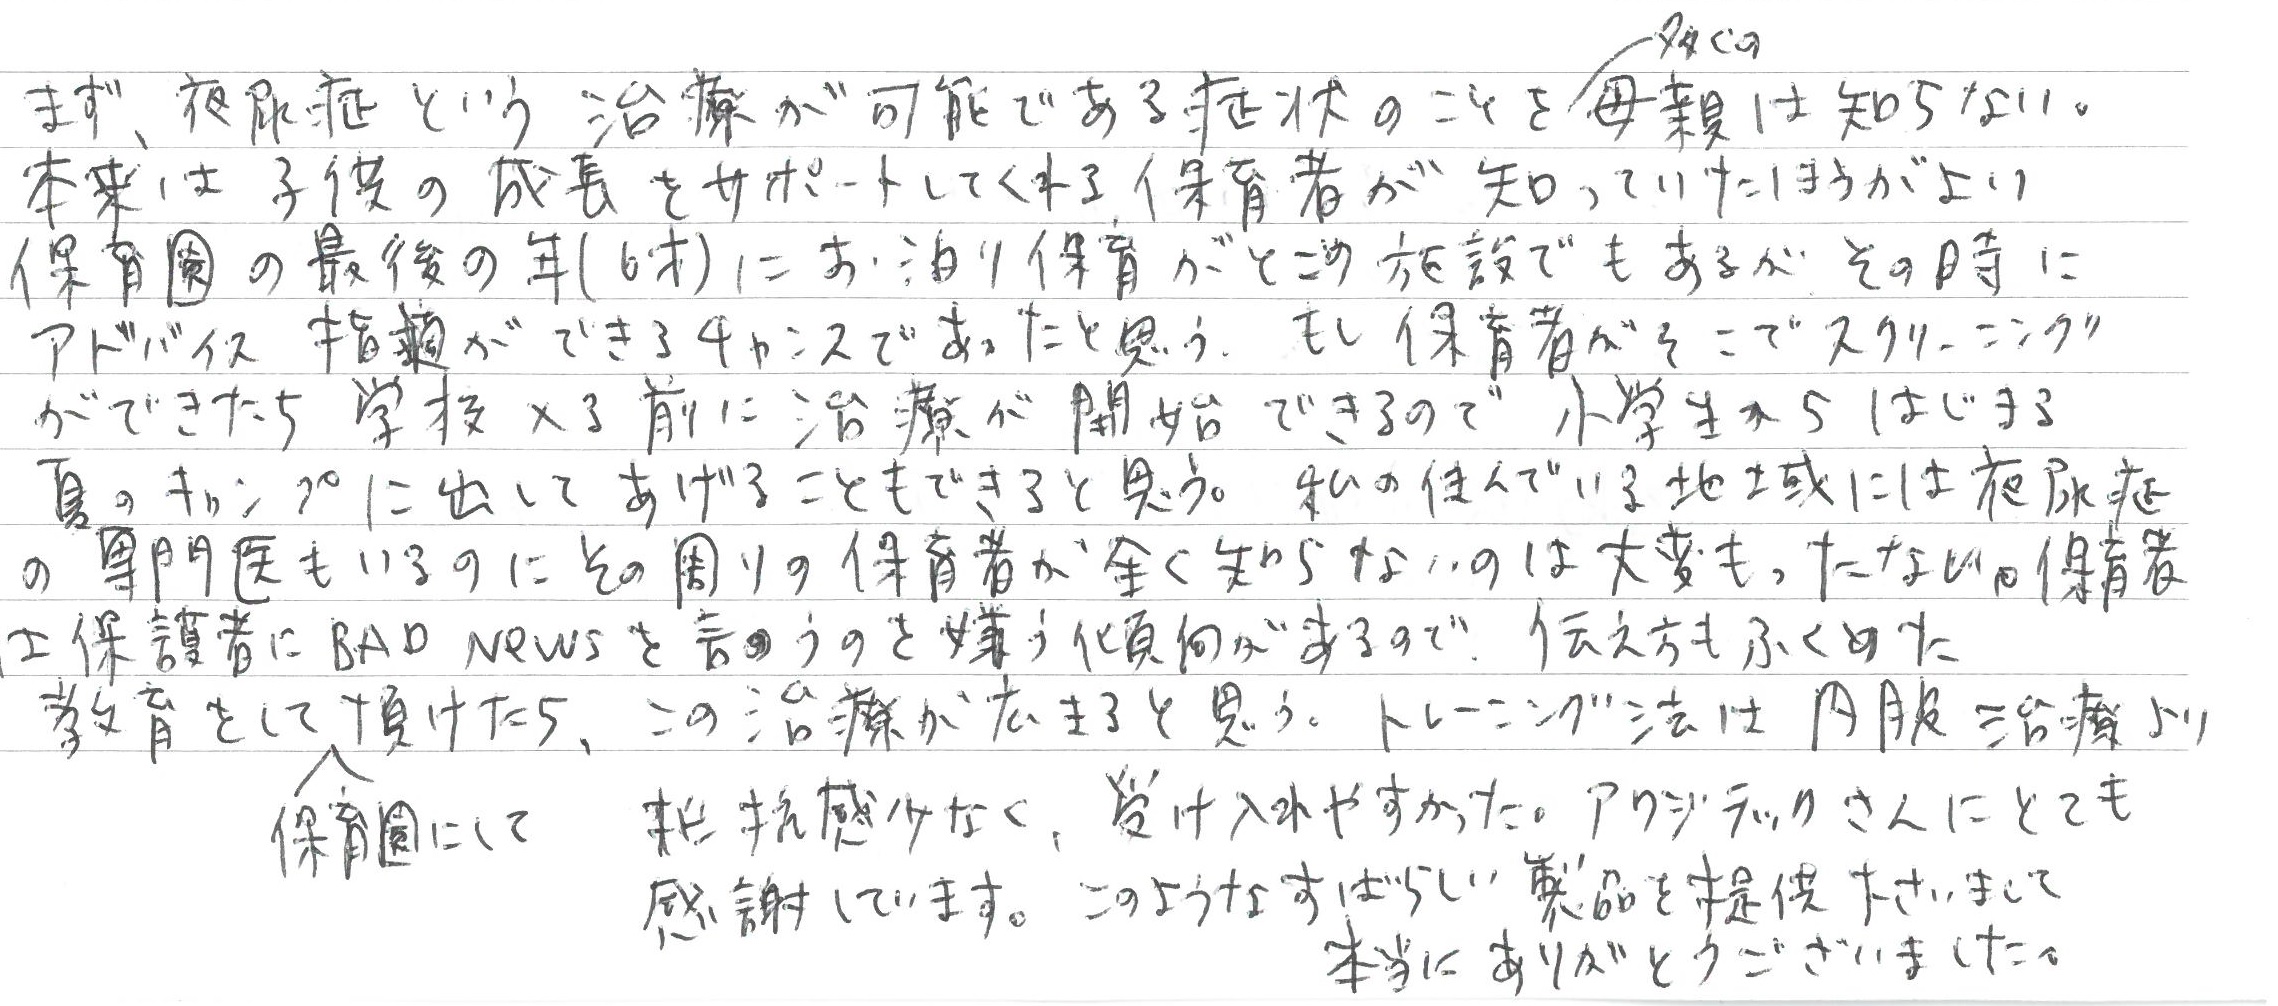 多くの
まず、夜尿症という治療が可能である症状のことを母親は知らない。
本来は子供の成長をサポートしてくれる保育者が知っていたほうがよい
保育園の最後の年(6才)にお泊り保育がどこの施設でもあるが その時に
アドバイス 指導ができるチャンスであったと思う。もし保育者がそこでスクリーニング
ができたら 学校入る前に治療が開始できるので 小学生からはじまる
夏のキャンプに出してあげることもできると思う。私の住んでいる地域には夜尿症
の専門医もいるのにその周りの保育者が全く知らないのは大変もったない。保育者
は保護者にBAD NEWSを言うのを嫌う傾向があるので、伝え方もふくめた
教育をして頂けたら、この治療が広まると思う。トレーニング法は内服治療より
保育園にして
抵抗感少なく、受け入れやすかった。アワジテックさんにとても
感謝しています。このようなすばらしい製品を提供下さいまして
本当にありがとうございました。